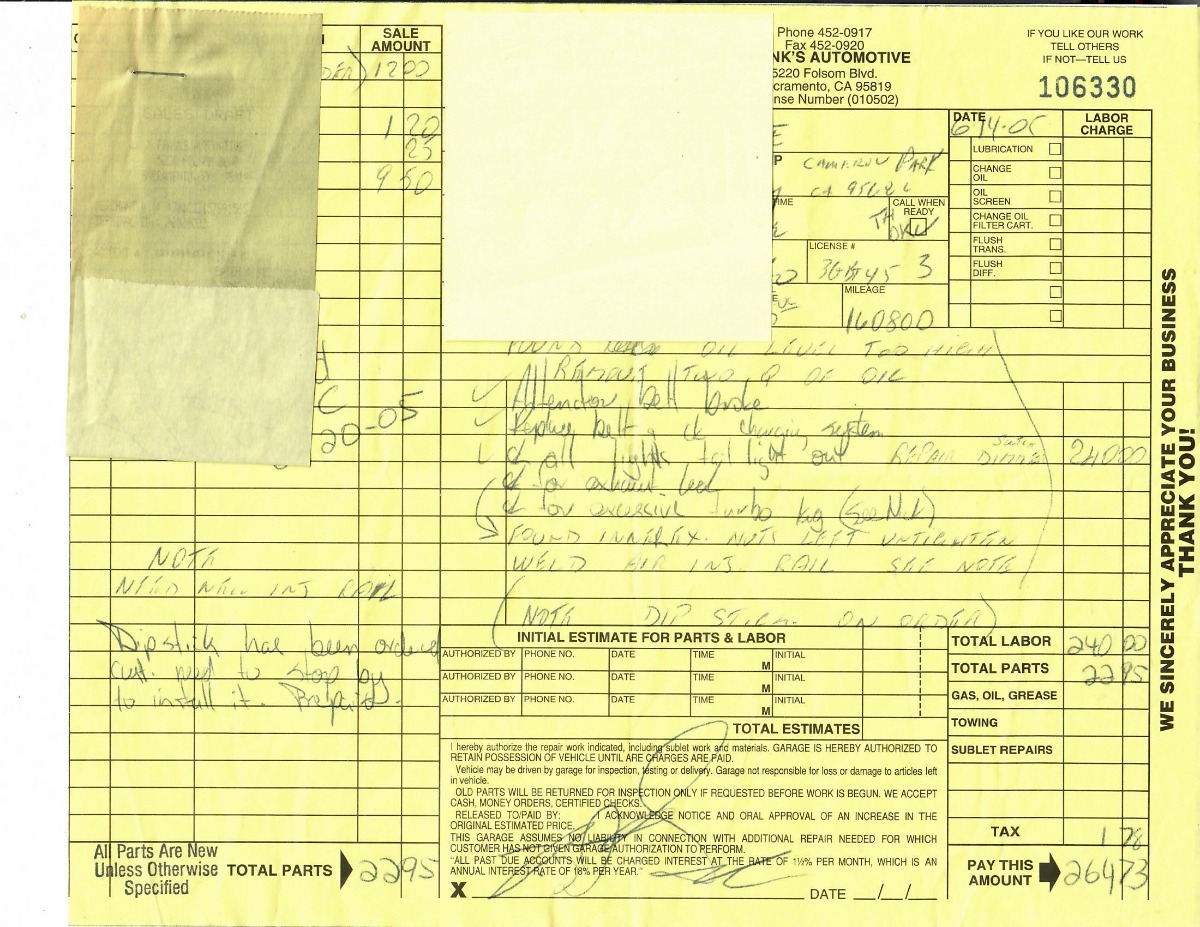 SALE
AMOUNT
1200
1 20
25
9 50
20-05
NOTE
NEED NEW INJ RAIL
Dipstick has been ordered
cust. need to stop by
to install it. Prepaid.
All Parts Are New
Unless Otherwise
Specified
TOTAL PARTS 2295
Phone 452-0917
Fax 452-0920
NK'S AUTOMOTIVE
5220 Folsom Blvd.
cramento, CA 95819
nse Number (010502)
IF YOU LIKE OUR WORK
TELL OTHERS
IF NOT—TELL US
106330
CAMERON PARK
CA
TIME
CALL WHEN
READY
LICENSE #
3
MILEAGE
160800
DATE
LABOR
CHARGE
LUBRICATION
CHANGE
OIL
OIL
SCREEN
CHANGE OIL
FILTER CART.
FLUSH
TRANS.
FLUSH
DIFF.
FOUND OIL LEVEL TOO HIGH
REMOVE TWO Q OF OIL
Alternator belt broke
Replace belt & ck charging system
ck all lights tail light out REPAIR DIMMER
24000
ck for exhaust leak
ck for excessive turbo lag (See Nick)
FOUND INNER EX. NUTS LEFT UNTIGHTEN
WELD AIR INJ. RAIL SEE NOTE
(NOTE DIP STICK ON ORDER)
INITIAL ESTIMATE FOR PARTS & LABOR
AUTHORIZED BY PHONE NO. DATE TIME M INITIAL
AUTHORIZED BY PHONE NO. DATE TIME M INITIAL
AUTHORIZED BY PHONE NO. DATE TIME M INITIAL
TOTAL ESTIMATES
I hereby authorize the repair work indicated, including sublet work and materials. GARAGE IS HEREBY AUTHORIZED TO
RETAIN POSSESSION OF VEHICLE UNTIL ALL CHARGES ARE PAID.
Vehicle may be driven by garage for inspection, testing or delivery. Garage not responsible for loss or damage to articles left
in vehicle.
OLD PARTS WILL BE RETURNED FOR INSPECTION ONLY IF REQUESTED BEFORE WORK IS BEGUN. WE ACCEPT
CASH, MONEY ORDERS, CERTIFIED CHECKS.
RELEASED TO/PAID BY: I ACKNOWLEDGE NOTICE AND ORAL APPROVAL OF AN INCREASE IN THE
ORIGINAL ESTIMATED PRICE.
THIS GARAGE ASSUMES NO LIABILITY IN CONNECTION WITH ADDITIONAL REPAIR NEEDED FOR WHICH
CUSTOMER HAS NOT GIVEN GARAGE AUTHORIZATION TO PERFORM.
"ALL PAST DUE ACCOUNTS WILL BE CHARGED INTEREST AT THE RATE OF 1½% PER MONTH, WHICH IS AN
ANNUAL INTEREST RATE OF 18% PER YEAR."
X DATE / /
TOTAL LABOR 240 00
TOTAL PARTS 2295
GAS, OIL, GREASE
TOWING
SUBLET REPAIRS
TAX 1 78
PAY THIS
AMOUNT 26473
WE SINCERELY APPRECIATE YOUR BUSINESS
THANK YOU!